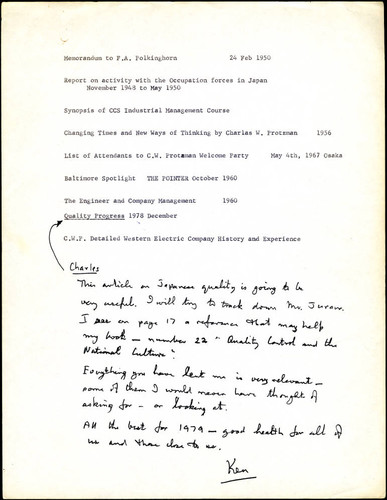 Memorandum to F.A. Polkinghorn 24 Feb 1950
Report on activity with the Occupation forces in Japan
November 1948 to May 1950
Synopsis of CCS Industrial Management Course
Changing Times and New Ways of Thinking by Charles W. Protzman 1956
List of Attendants to C.W. Protzman Welcome Party May 4th, 1967 Osaka
Baltimore Spotlight THE POINTER October 1960
The Engineer and Company Management 1960
Quality Progress 1978 December
C.W.P. Detailed Western Electric Company History and Experience
Charles
This article on Japanese quality is going to be
very useful. I will try to track down Mr. Juran.
I see on page 17 a reference that may help
my book – number 22 "Quality Control and the
National Culture".
Everything you have lent me is very relevant –
some of them I would never have thought of
asking for – or looking at.
All the best for 1979 – good health for all of
us and those close to us.
Ken